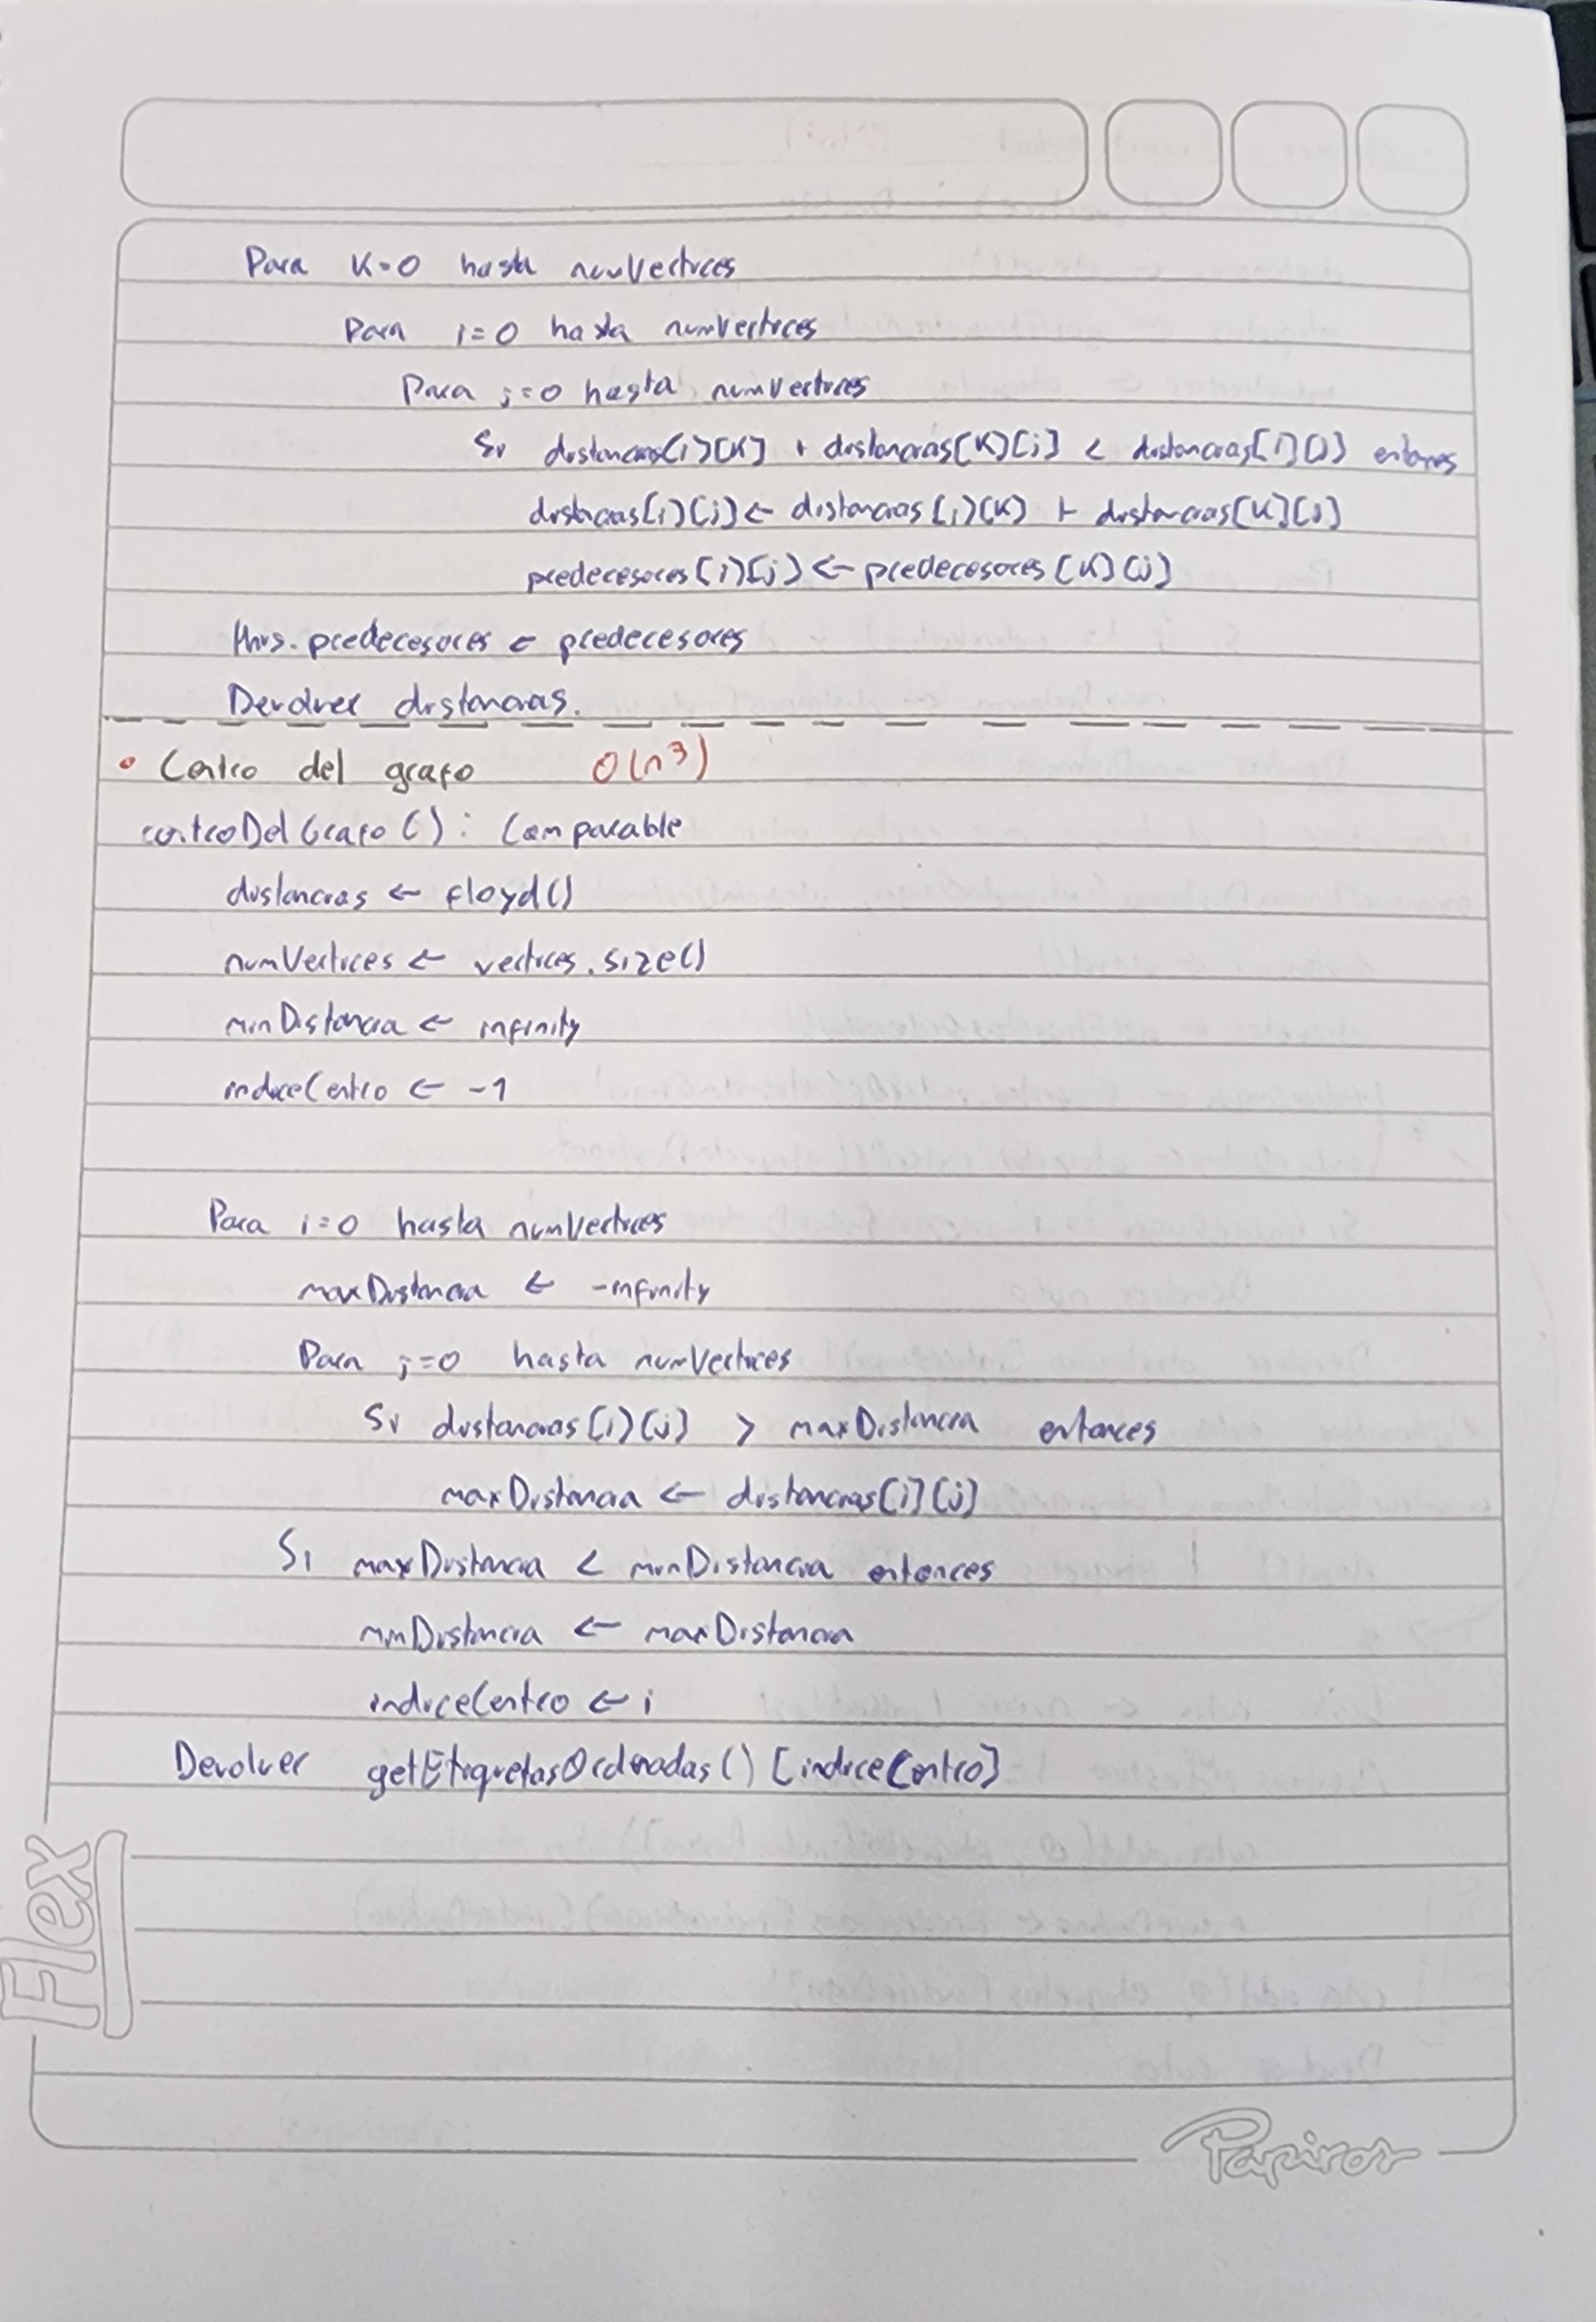 Para K=0 hasta numVertices
Para i=0 hasta numVertices
Para j=0 hasta numVertices
Si distancias[i][K] + distancias[K][j] < distancias[i][j] entonces
distacias[i][j] ← distancias[i][K] + distancias[K][j]
predecesores[i][j] ← predecesores[K][j]
this.predecesores ← predecesores
Devolver distancias.
• Centro del grafo O(n³)
centroDelGrafo(): Comparable
distancias ← floyd()
numVertices ← vertices.size()
minDistancia ← infinity
indiceCentro ← -1
Para i=0 hasta numVertices
maxDistancia ← -infinity
Para j=0 hasta numVertices
Si distancias[i][j] > maxDistancia entonces
maxDistancia ← distancias[i][j]
Si maxDistancia < minDistancia entonces
minDistancia ← maxDistancia
indiceCentro ← i
Devolver getEtiquetasOrdenadas()[indiceCentro]
Flex
Papiros